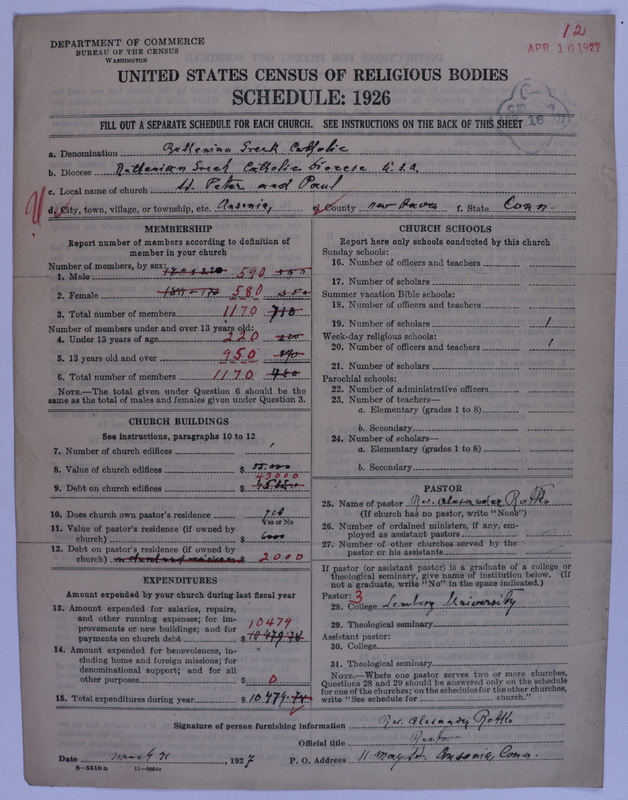 DEPARTMENT OF COMMERCE
BUREAU OF THE CENSUS
WASHINGTON
12
APR 16 1927
UNITED STATES CENSUS OF RELIGIOUS BODIES
SCHEDULE: 1926
FILL OUT A SEPARATE SCHEDULE FOR EACH CHURCH. SEE INSTRUCTIONS ON THE BACK OF THIS SHEET
a. Denomination Greek Catholic
b. Diocese Ruthenian Greek Catholic Diocese U.S.A.
c. Local name of church St. Peter and Paul
d. City, town, village, or township, etc. Ansonia, e. County New Haven f. State Conn.
MEMBERSHIP
Report number of members according to definition of member in your church
Number of members, by sex:
1. Male 590
2. Female 580
3. Total number of members 1170 710
Number of members under and over 13 years old:
4. Under 13 years of age 220
5. 13 years old and over 950
6. Total number of members 1170
NOTE.—The total given under Question 6 should be the same as the total of males and females given under Question 3.
CHURCH BUILDINGS
See instructions, paragraphs 10 to 12
7. Number of church edifices 1
8. Value of church edifices $ 55.000
9. Debt on church edifices $ 45000
10. Does church own pastor's residence yes
Yes or No
11. Value of pastor's residence (if owned by church) $ 6000
12. Debt on pastor's residence (if owned by church) 2000
EXPENDITURES
Amount expended by your church during last fiscal year
13. Amount expended for salaries, repairs, and other running expenses; for improvements or new buildings; and for payments on church debt $ 10479 10479.78
14. Amount expended for benevolences, including home and foreign missions; for denominational support; and for all other purposes $ 0
15. Total expenditures during year $ 10479.78
CHURCH SCHOOLS
Report here only schools conducted by this church
Sunday schools:
16. Number of officers and teachers
17. Number of scholars
Summer vacation Bible schools:
18. Number of officers and teachers
19. Number of scholars 1
Week-day religious schools:
20. Number of officers and teachers 1
21. Number of scholars
Parochial schools:
22. Number of administrative officers
23. Number of teachers—
a. Elementary (grades 1 to 8)
b. Secondary
24. Number of scholars—
a. Elementary (grades 1 to 8)
b. Secondary
PASTOR
25. Name of pastor Rev. Alexander Rotko
(If church has no pastor, write "None")
26. Number of ordained ministers, if any, employed as assistant pastors
27. Number of other churches served by the pastor or his assistants
If pastor (or assistant pastor) is a graduate of a college or theological seminary, give name of institution below. (If not a graduate, write "No" in the space indicated.)
Pastor: 3
28. College Lemberg University
29. Theological seminary
Assistant pastor:
30. College
31. Theological seminary
NOTE.—Where one pastor serves two or more churches, Questions 28 and 29 should be answered only on the schedule for one of the churches; on the schedules for the other churches, write "See schedule for church."
Signature of person furnishing information Rev. Alexander Rotko
Official title Rector
Date March 21, 1927 P. O. Address 11 May St. Ansonia, Conn.